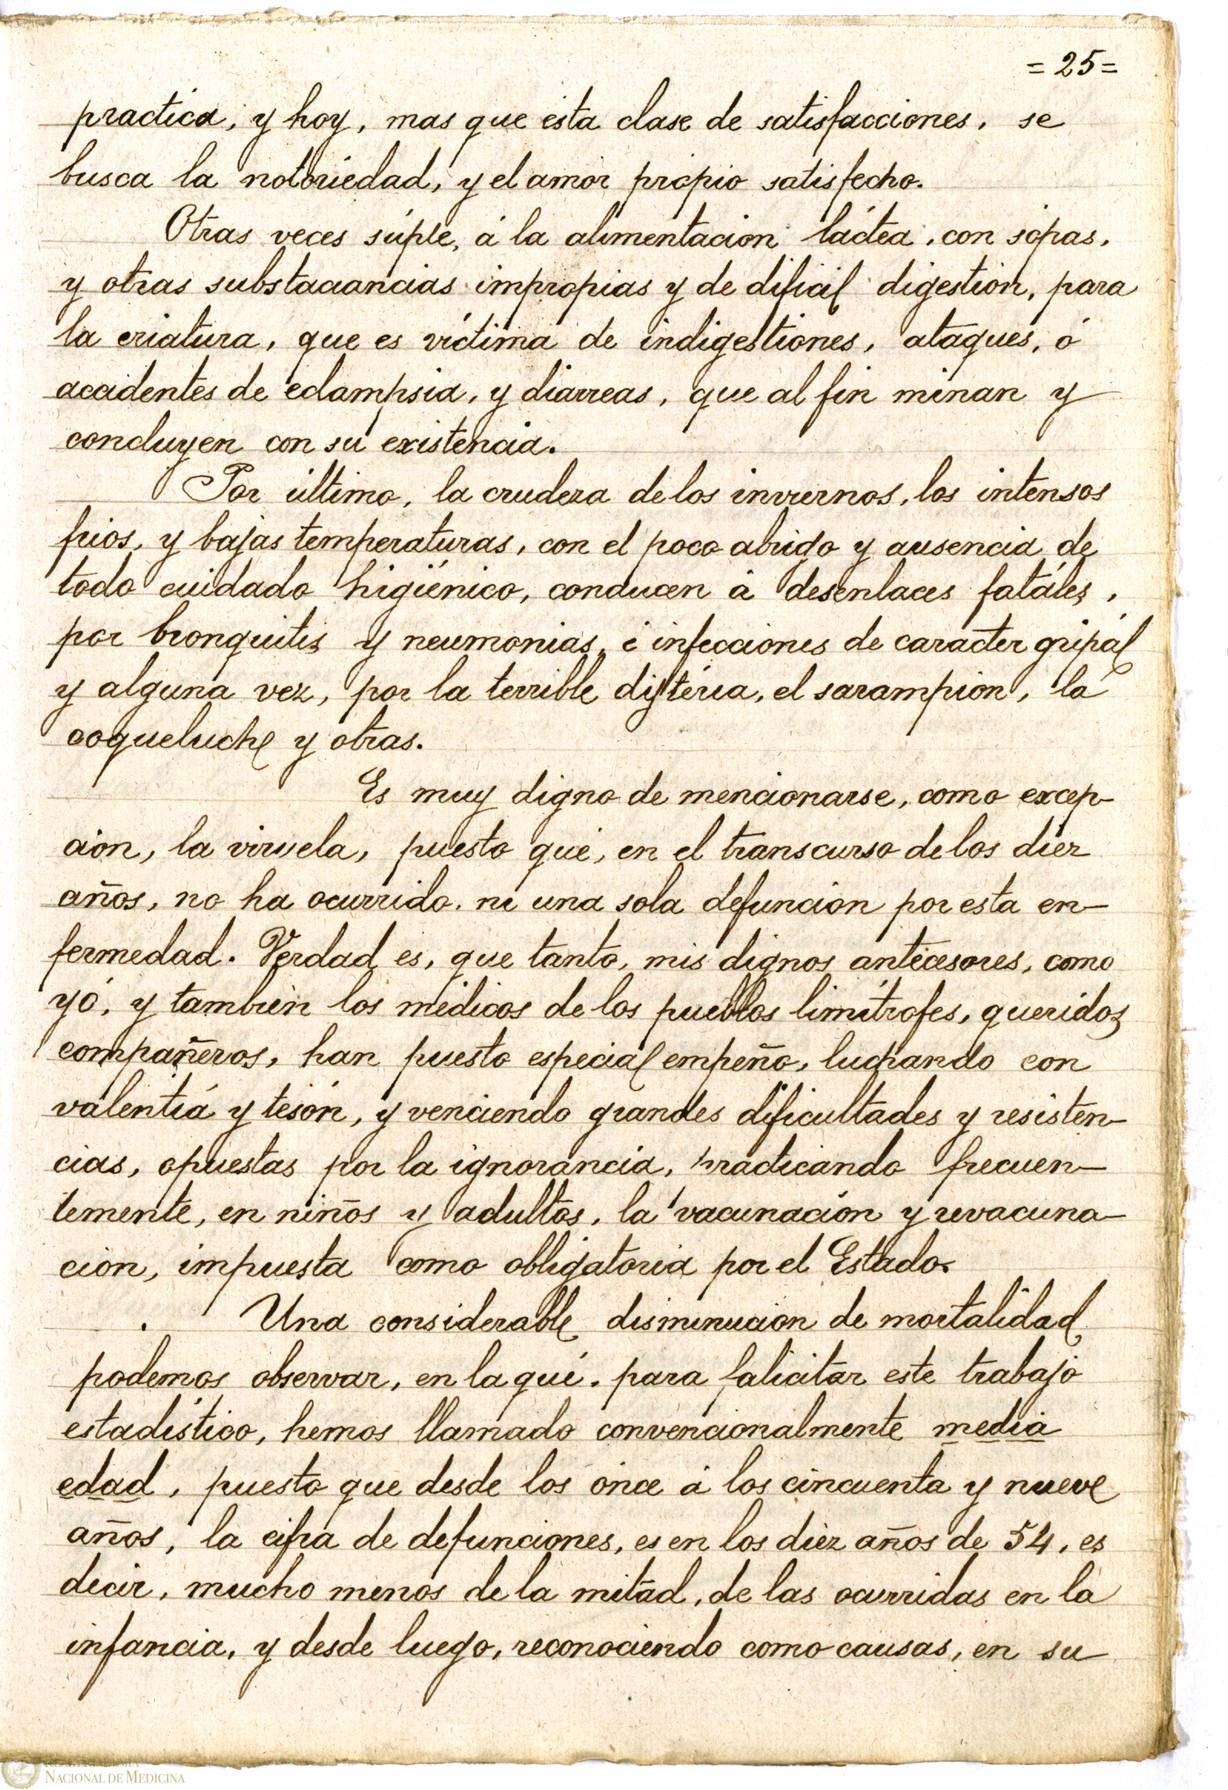 =25=
practica, y hoy, mas que esta clase de satisfacciones, se
busca la notoriedad, y el amor propio satisfecho.
Otras veces súple, á la alimentacion láctea, con sopas,
y otras substacancias impropias y de dificil digestion, para
la criatura, que es victima de indigestiones, ataques, ó
accidentes de eclampsia, y diarreas, que al fin minan y
concluyen con su existencia.
Por último, la crudeza de los inviernos, los intensos
frios, y bajas temperaturas, con el poco abrigo y ausencia de
todo cuidado higiénico, conducen á desenlaces fatáles,
por bronquitis y neumonias, é infecciones de caracter gripál
y alguna vez, por la terrible diftéria, el sarampion, la
coqueluche y otras.
Es muy digno de mencionarse, como excep-
cion, la viruela, puesto que, en el transcurso de los diez
años, no ha ocurrido, ni una sola defuncion por esta en-
fermedad. Verdad es, que tanto, mis dignos antecesores, como
yó, y tambien los médicos de los pueblos limítrofes, queridos
compañeros, han puesto especial empeño, luchando con
valentiá y tesón, y venciendo grandes dificultades y resisten-
cias, opuestas por la ignorancia, practicando frecuen-
temente, en niños y adultos, la vacunación y revacuna-
cion, impuesta como obligatoria por el Estado.
Una considerable disminucion de mortalidad
podemos observar, en la que, para falicitar este trabajo
estadístico, hemos llamado convencionalmente media
edad, puesto que desde los once á los cincuenta y nueve
años, la cifra de defunciones, es en los diez años de 54, es
decir, mucho menos de la mitad, de las ocurridas en la
infancia, y desde luego, reconociendo como causas, en su
NACIONAL DE MEDICINA